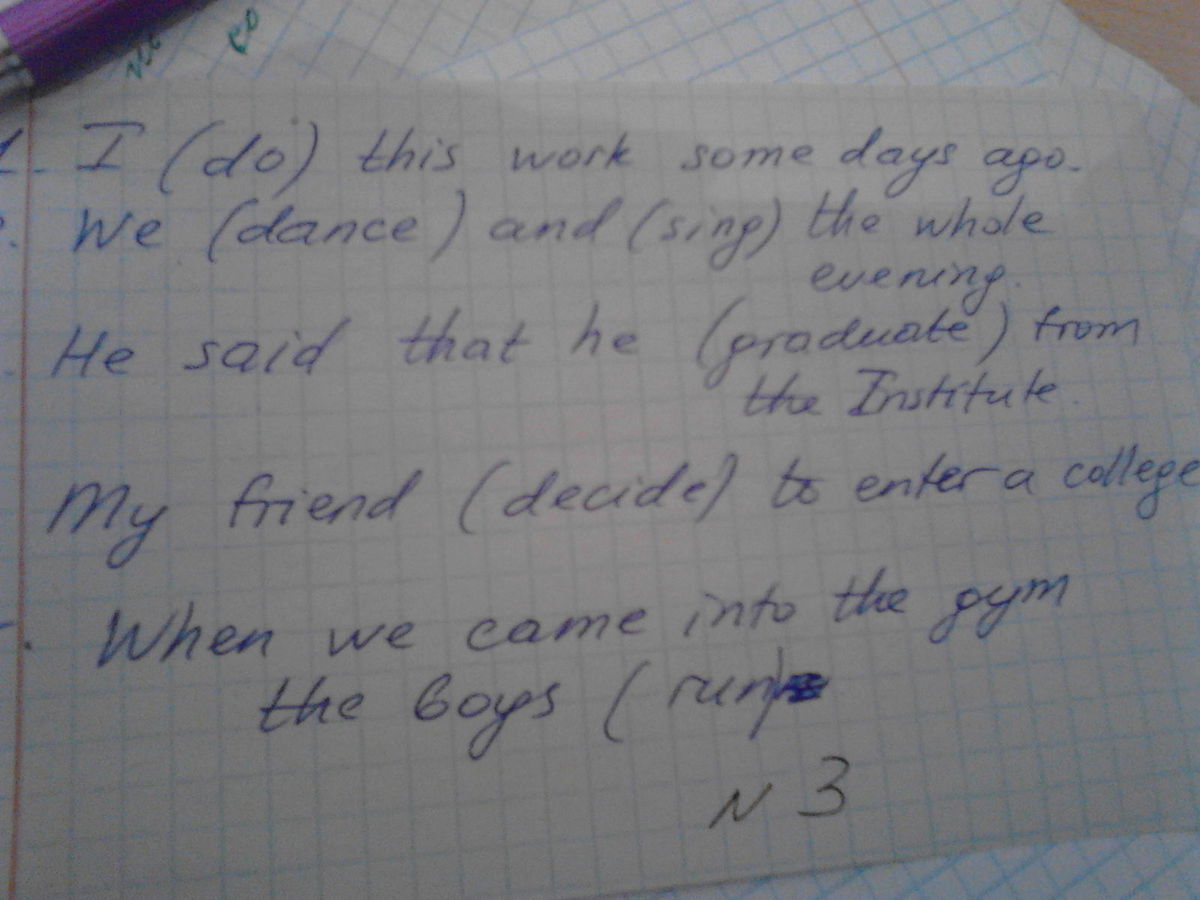 1. I (do) this work some days ago.
We (dance) and (sing) the whole
evening.
He said that he (graduate) from
the Institute.
My friend (decide) to enter a college
When we came into the gym
the boys (run)
N 3